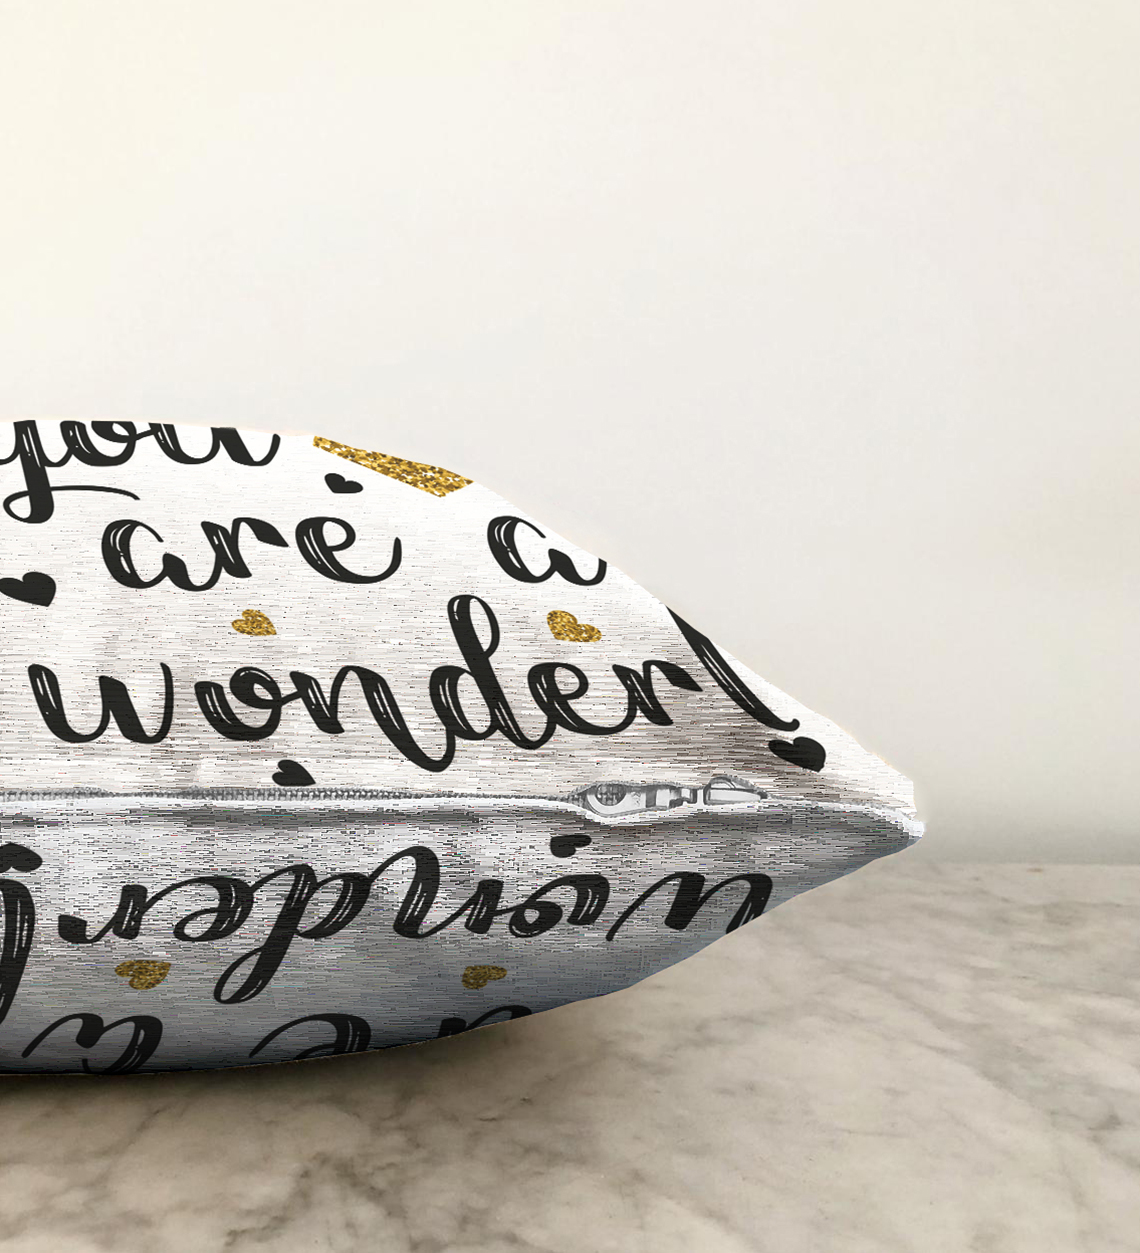 you
are a
wonderl
wonderf
are a